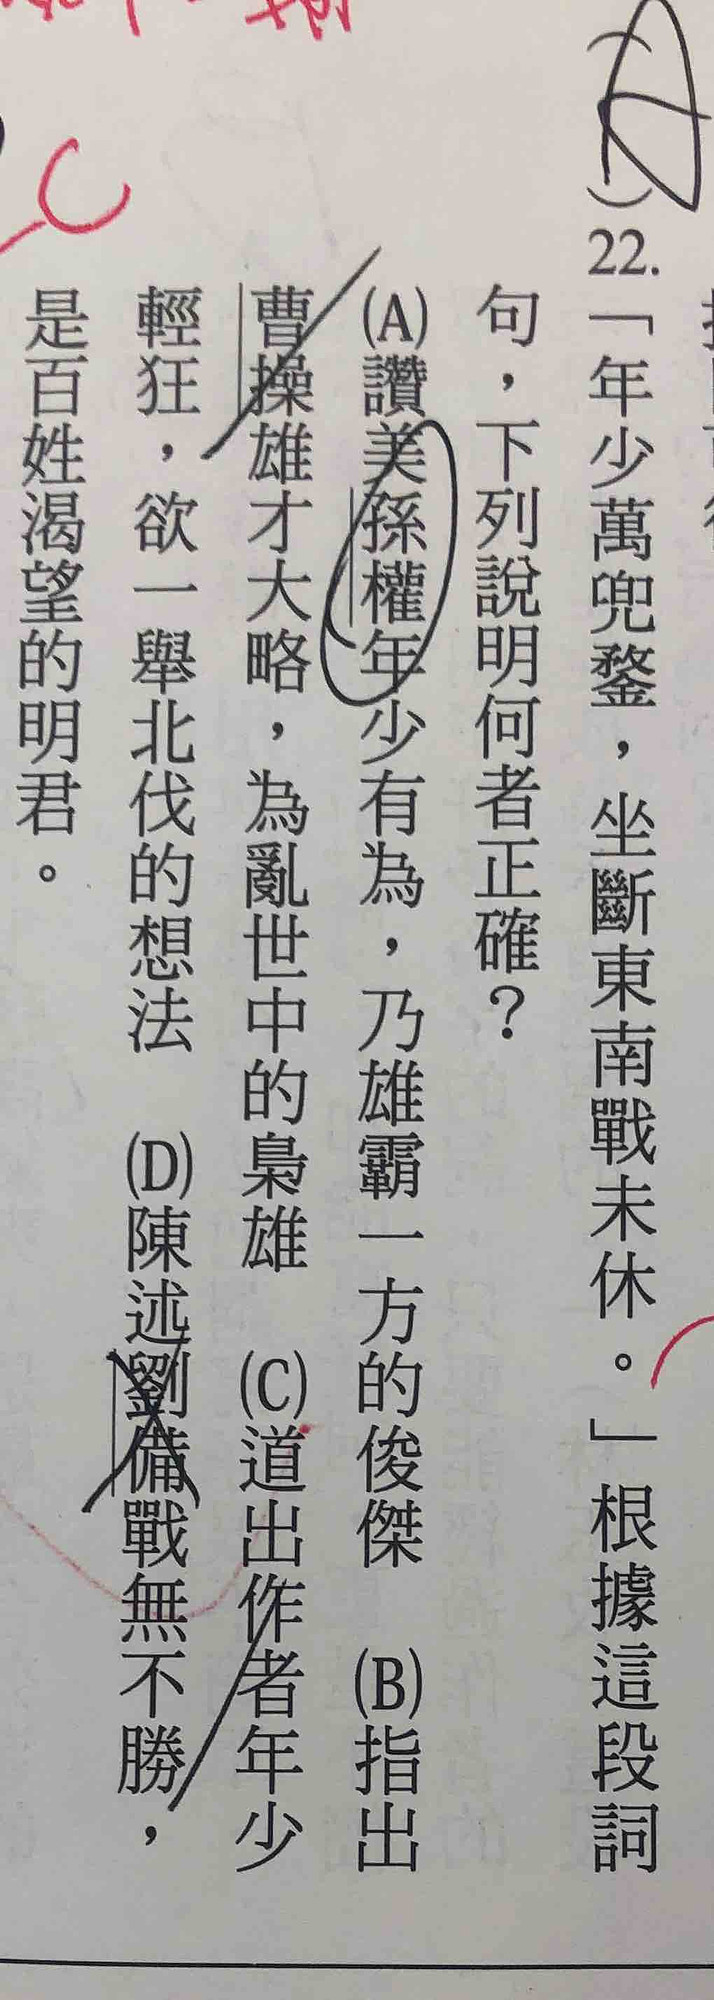 (A)22.「年少萬兜鍪，坐斷東南戰未休。」根據這段詞
句，下列說明何者正確？
(A)讚美孫權年少有為，乃雄霸一方的俊傑　(B)指出
曹操雄才大略，為亂世中的梟雄　(C)道出作者年少
輕狂，欲一舉北伐的想法　(D)陳述劉備戰無不勝，
是百姓渴望的明君。